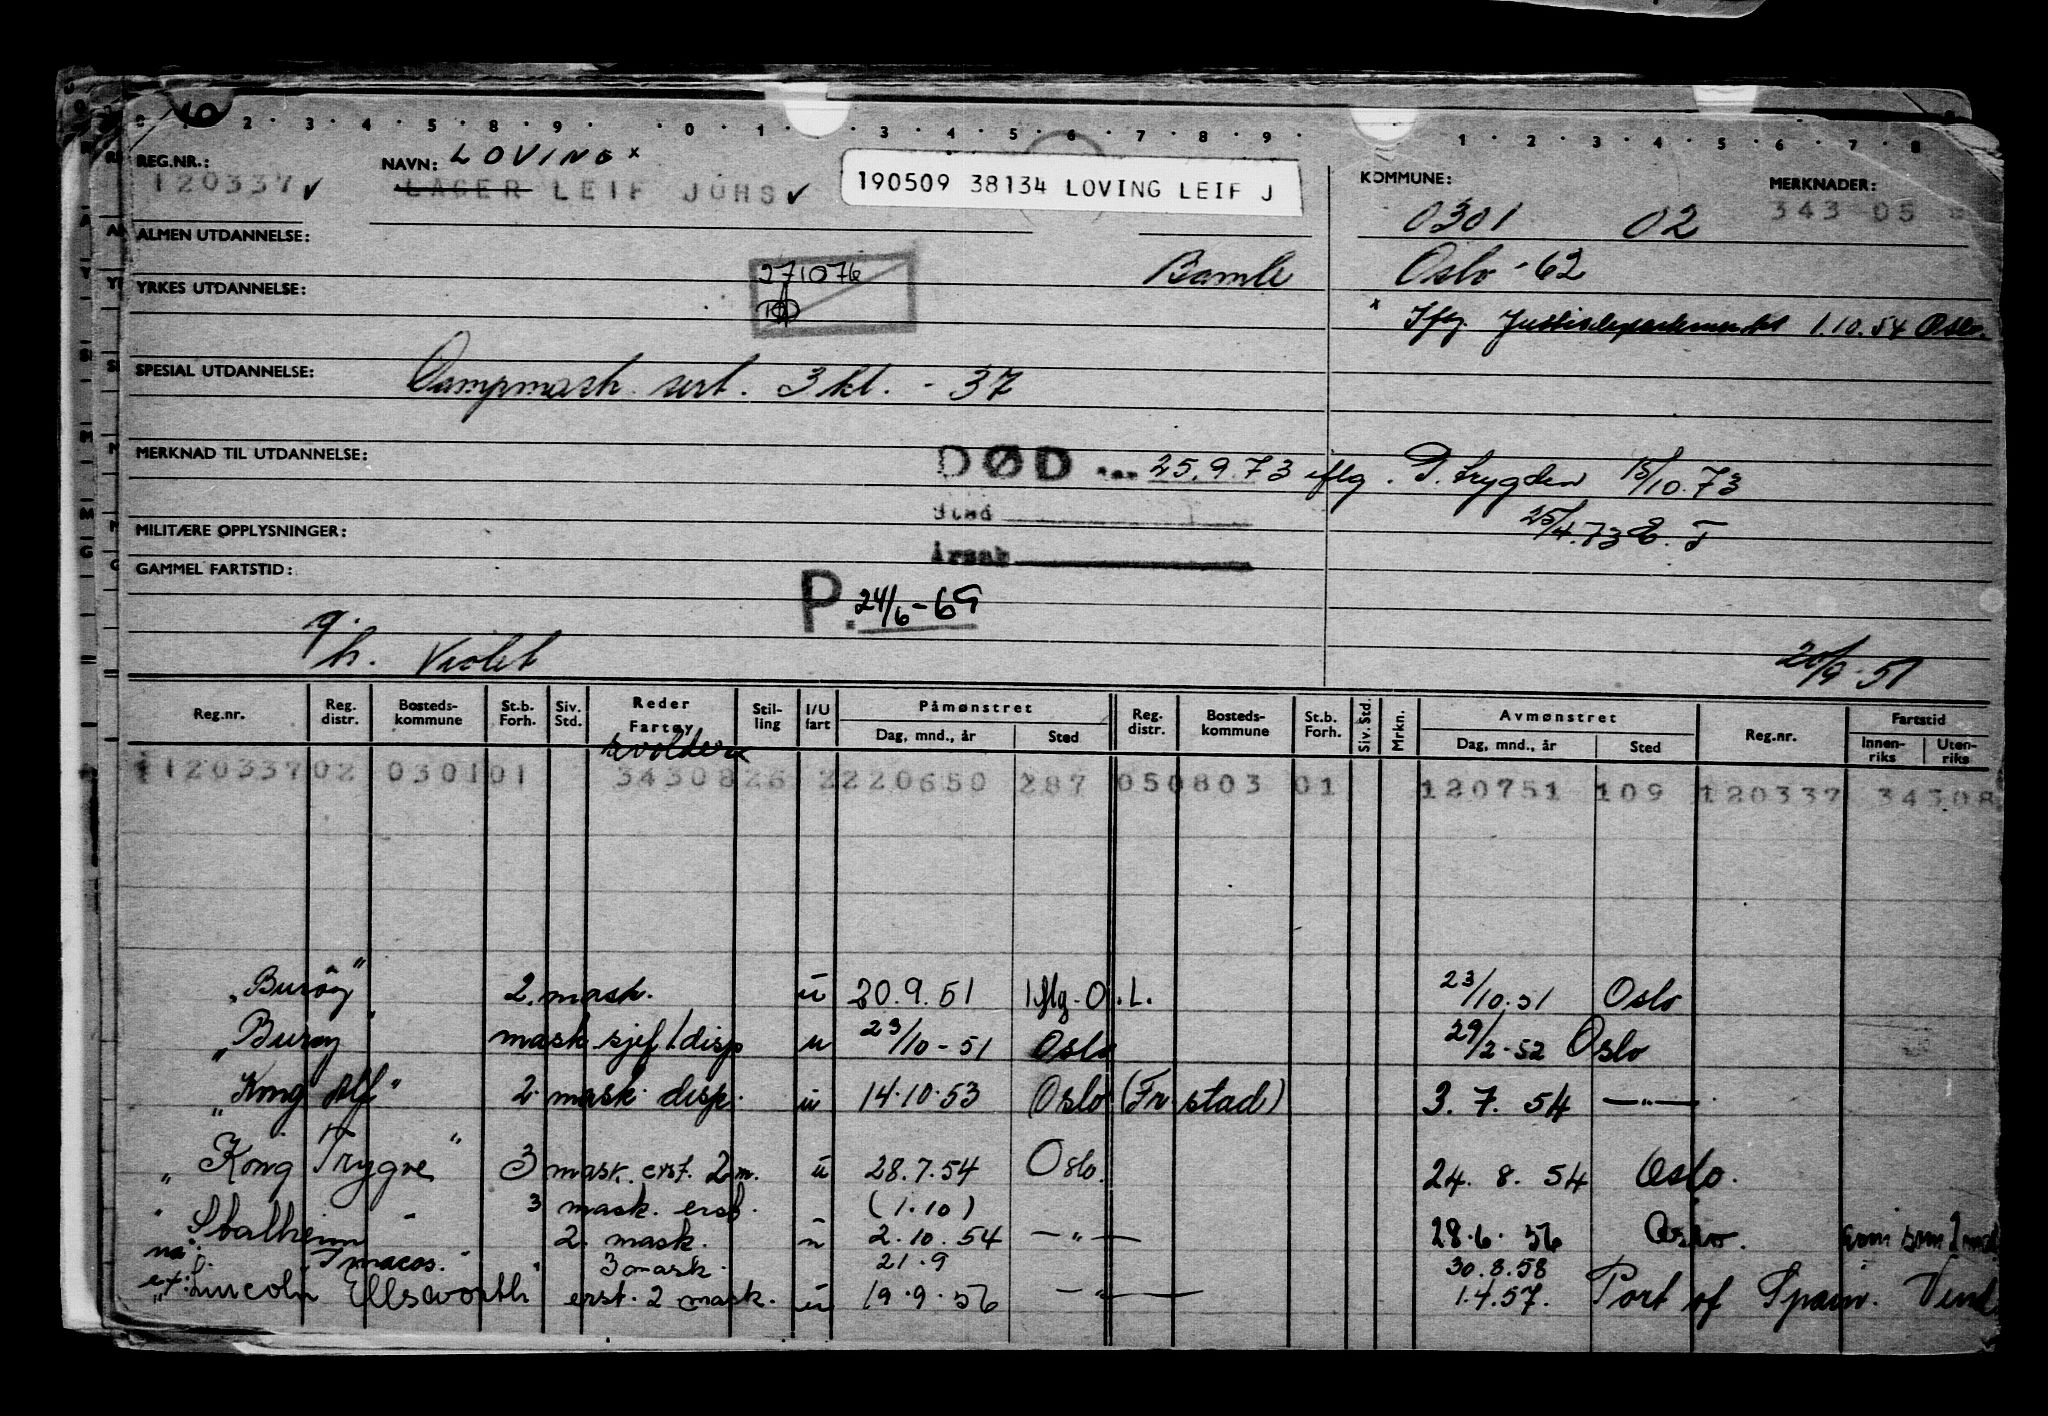 REG.NR.: NAVN: LOVING x KOMMUNE: MERKNADER:
120337 ✓ LAGER LEIF JOHS ✓ 190509 38134 LOVING LEIF J 0301 02 343 05
ALMEN UTDANNELSE:
271076 Bamle Oslo -62
YRKES UTDANNELSE:
x Iflg. Justisdepartementet 1.10.54 Oslo.
SPESIAL UTDANNELSE: Dampmask. sert. 3 kl. - 37
MERKNAD TIL UTDANNELSE: DØD 25.9.73 iflg. P. trygden 15/10.73
Sted 25/4.73 E. T
MILITÆRE OPPLYSNINGER:
Årsak
GAMMEL FARTSTID:
P. 24/6-69
h. Violet
Reg.nr. Reg. distr. Bosteds-kommune St.b. Forh. Siv. Std. Reder Fartøy Stil-ling I/U fart Påmønstret Dag, mnd., år Sted Reg. distr. Bosteds-kommune St.b. Forh. Siv. Std. Mrkn. Avmønstret Dag, mnd., år Sted Reg.nr. Fartstid Innen-riks Uten-riks
1 120337 02 0301 01 34308 26 2 220650 287 05 0803 01 120751 109 120337 34308
"Burøy" 2. mask. u 20.9.51 Iflg. O.L. 23/10.51 Oslo
"Burøy" mask.sjef/disp u 23/10-51 Oslo 29/2-52 Oslo
"Kong Alf" 2. mask. disp. u 14.10.53 Oslo (Fr stad) 3. 7. 54 —"—
"Kong Trygve" 3 mask. erst. 2 m. u 28.7.54 Oslo. 24. 8. 54 Oslo.
3 mask. erst. (1.10)
"Stalheim" 2. mask. u 2.10.54 —"— 28.6.56 Oslo.
nå: "Imacos." 3 mask. 21.9 30.8.58
ex: "Lincoln Ellsworth" erst. 2 mask. u 19.9.56 —"— 1.4.57. Port of Spain.